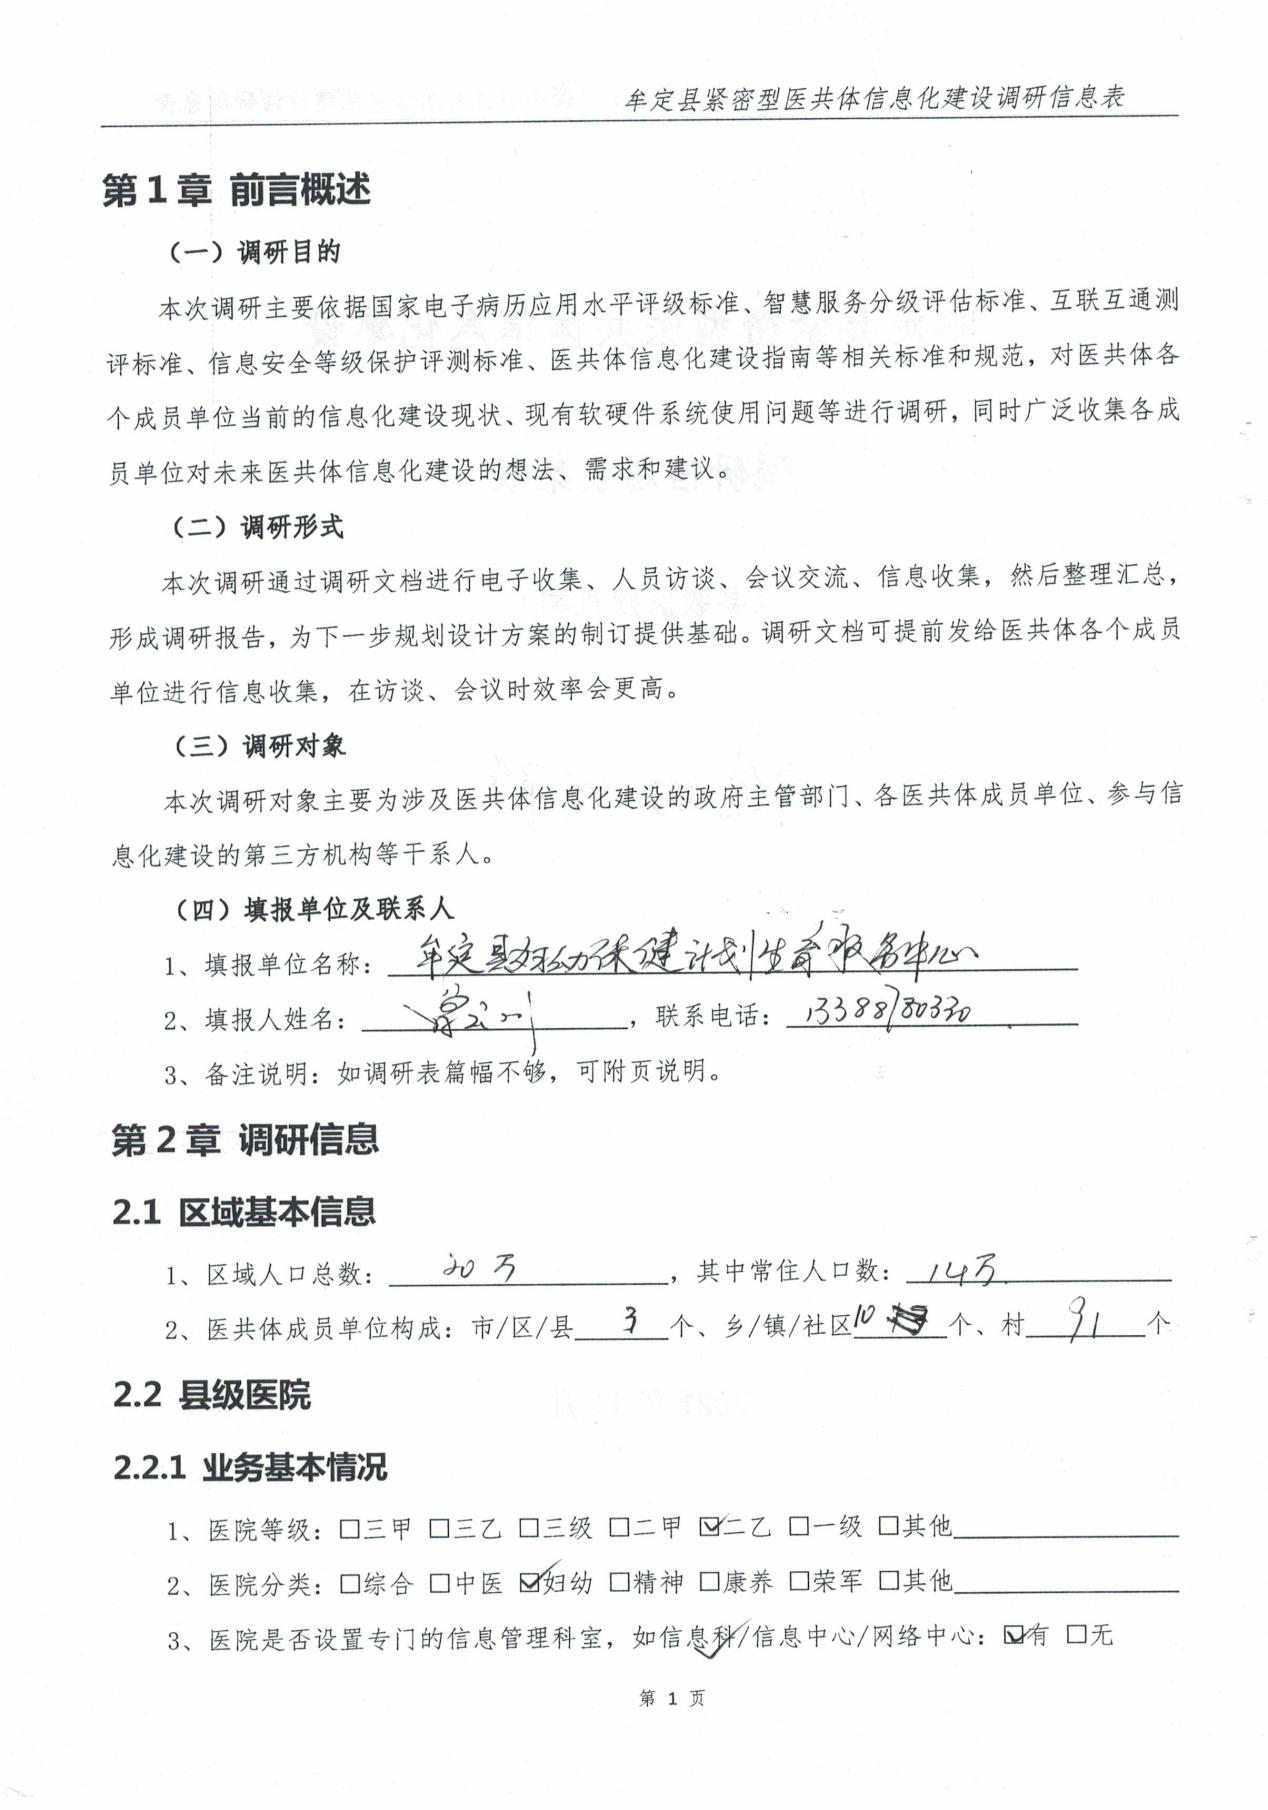 牟定县紧密型医共体信息化建设调研信息表
第1章 前言概述
（一）调研目的
本次调研主要依据国家电子病历应用水平评级标准、智慧服务分级评估标准、互联互通测
评标准、信息安全等级保护评测标准、医共体信息化建设指南等相关标准和规范，对医共体各
个成员单位当前的信息化建设现状、现有软硬件系统使用问题等进行调研，同时广泛收集各成
员单位对未来医共体信息化建设的想法、需求和建议。
（二）调研形式
本次调研通过调研文档进行电子收集、人员访谈、会议交流、信息收集，然后整理汇总，
形成调研报告，为下一步规划设计方案的制订提供基础。调研文档可提前发给医共体各个成员
单位进行信息收集，在访谈、会议时效率会更高。
（三）调研对象
本次调研对象主要为涉及医共体信息化建设的政府主管部门、各医共体成员单位、参与信
息化建设的第三方机构等干系人。
（四）填报单位及联系人
1、填报单位名称：牟定县妇幼保健计划生育服务中心
2、填报人姓名：，联系电话：13388780330
3、备注说明：如调研表篇幅不够，可附页说明。
第2章 调研信息
2.1 区域基本信息
1、区域人口总数：20万，其中常住人口数：14万
2、医共体成员单位构成：市/区/县3个、乡/镇/社区10个、村91个
2.2 县级医院
2.2.1 业务基本情况
1、医院等级：□三甲 □三乙 □三级 □二甲 ☑二乙 □一级 □其他
2、医院分类：□综合 □中医 ☑妇幼 □精神 □康养 □荣军 □其他
3、医院是否设置专门的信息管理科室，如信息科/信息中心/网络中心：☑有 □无
第 1 页